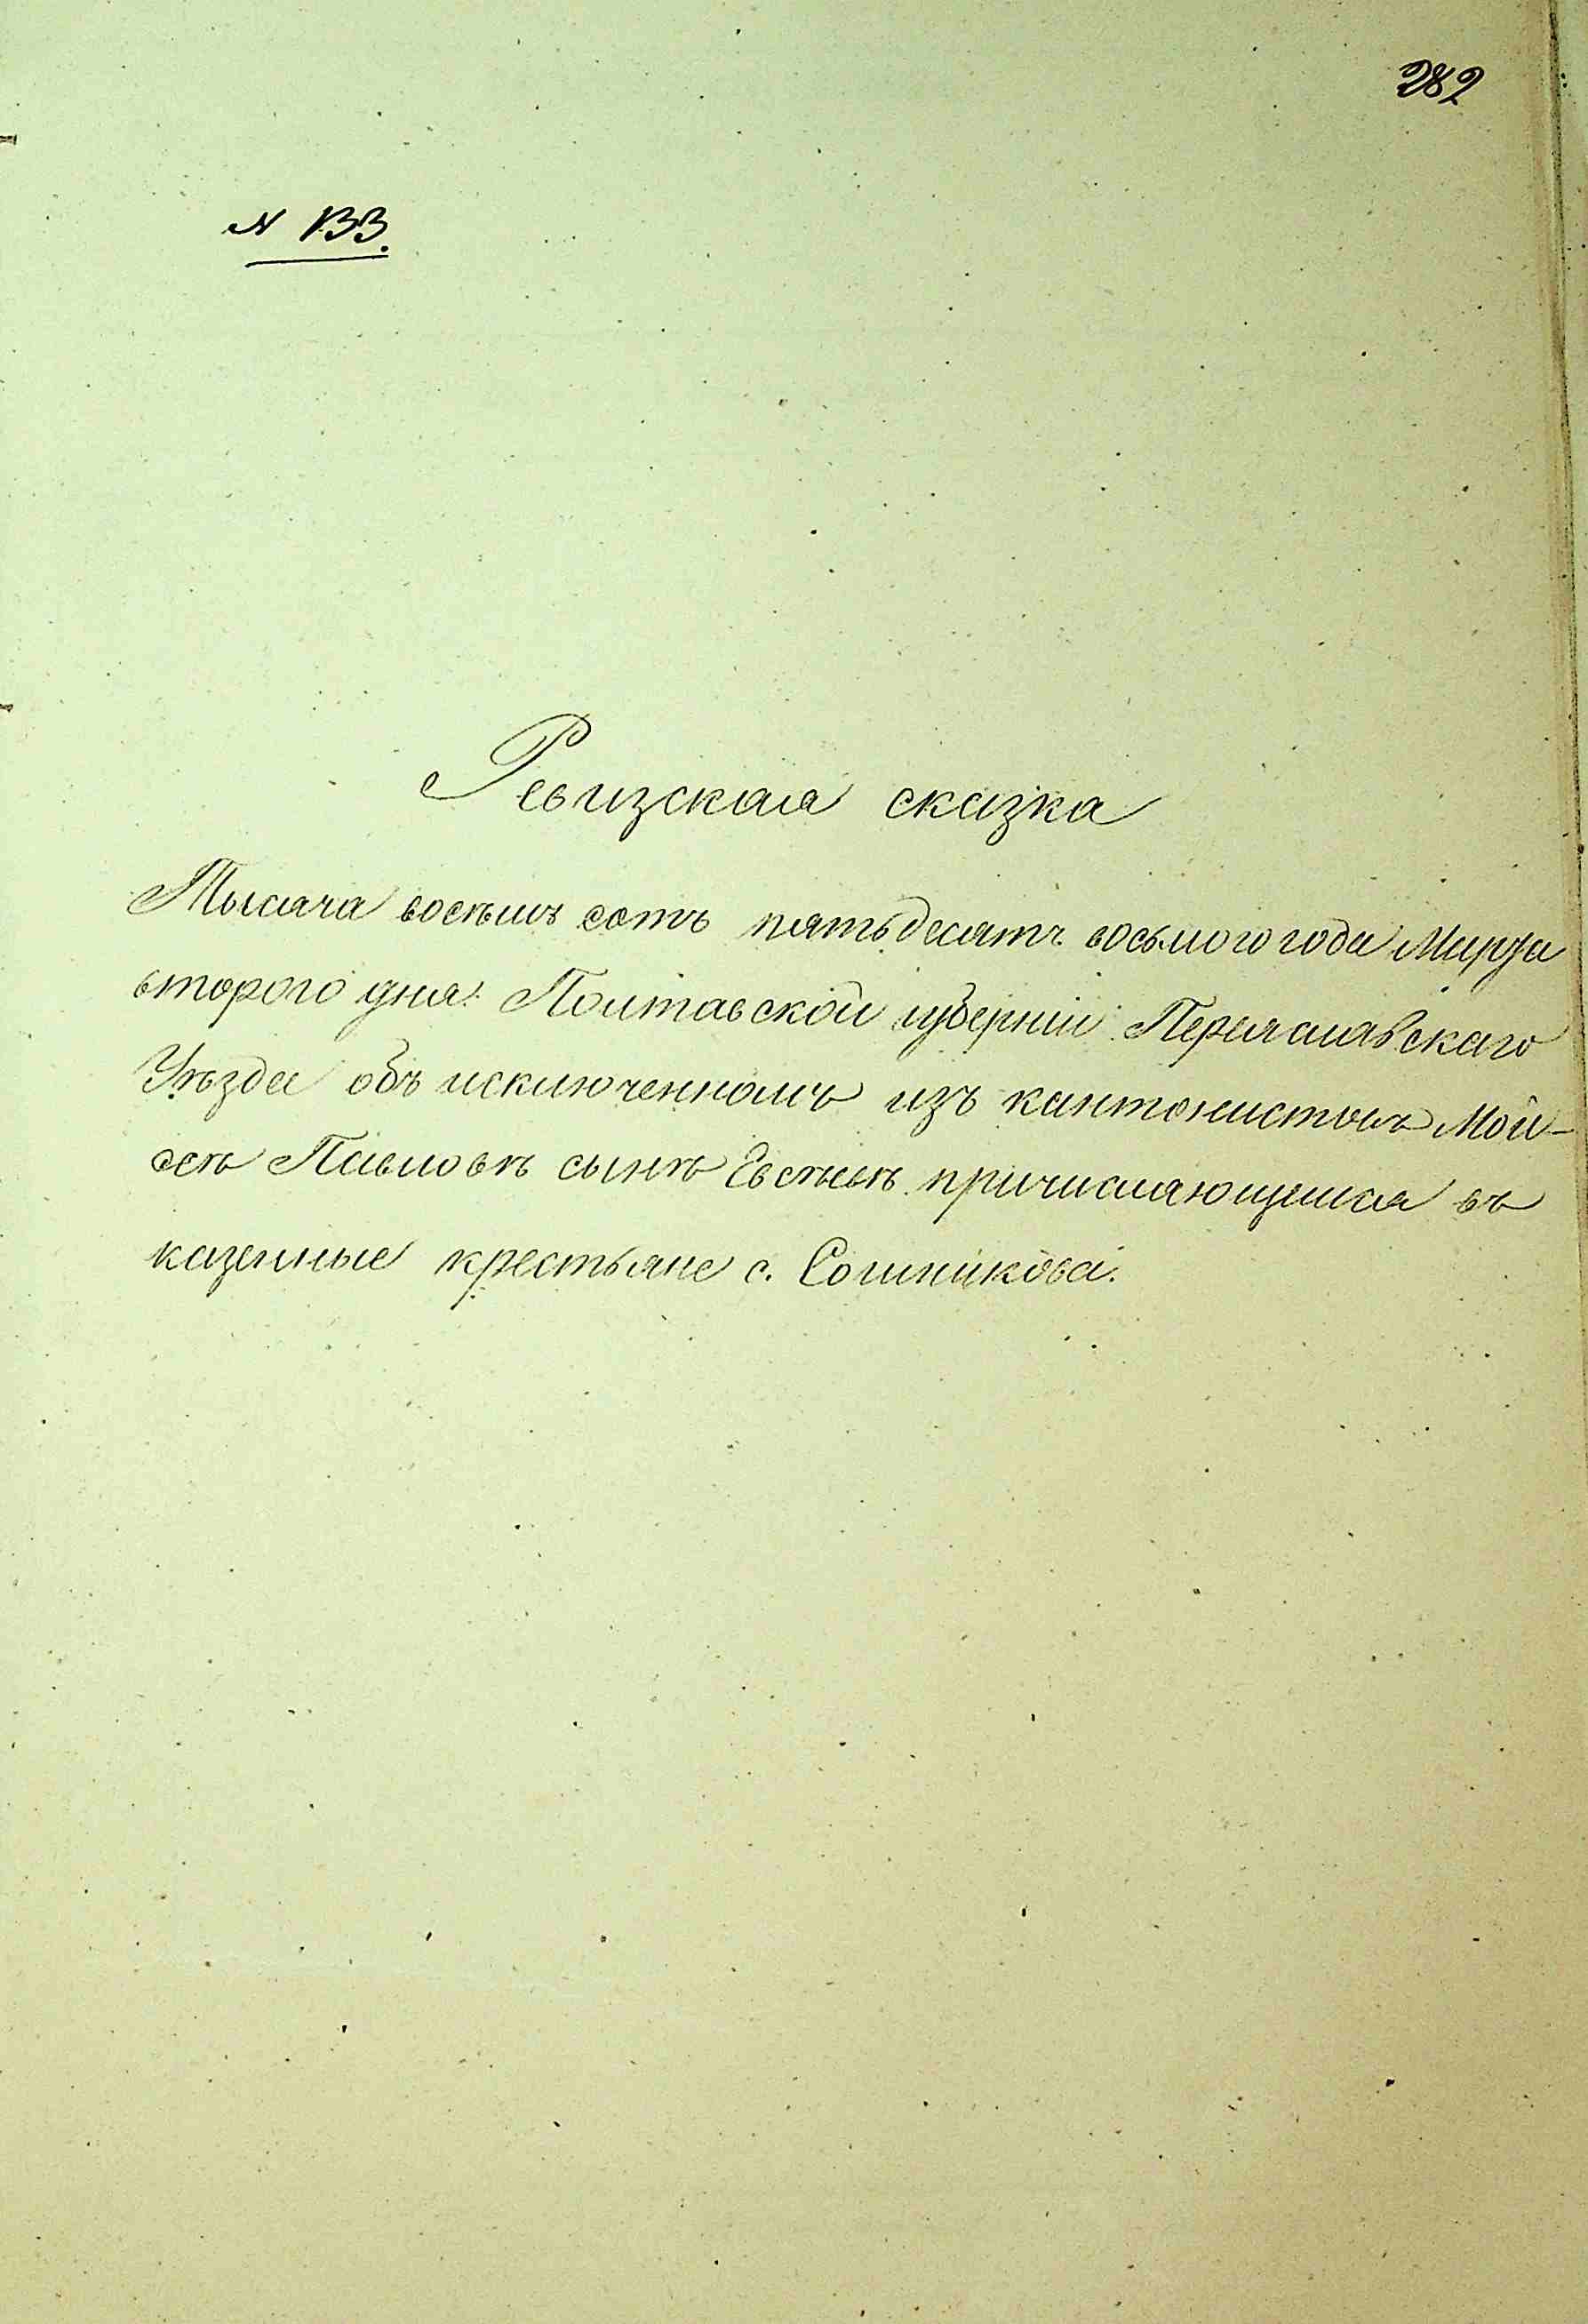 282
№ 133.
Ревизская сказка
Тысяча восемь сотъ пятьдесятъ восьмого года Марта
второго дня Полтавской губерніи Переяславскаго
Уѣзда объ исключенномъ изъ кантонистовъ Мой-
сеѣ Павловѣ сынѣ причисляющемся въ
казенные крестьяне с. Сошникова.